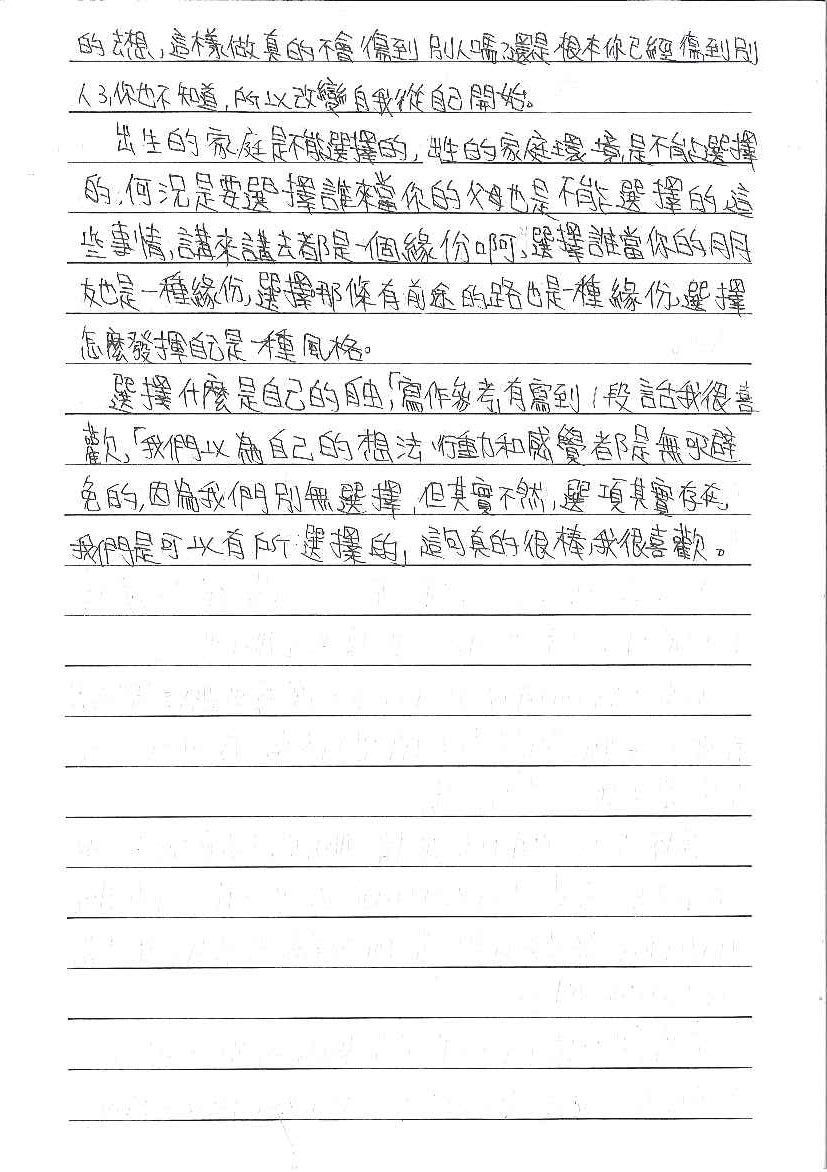 的去想，這樣做真的不會傷到別人嗎？還是根本你已經傷到別
人了，你也不知道，所以改變自我從自己開始。
出生的家庭是不能選擇的，出生的家庭環境是不能選擇
的，何況是要選擇誰來當你的父母也是不能選擇的，這
些事情，講來講去都是一個緣份啊，選擇誰當你的朋
友也是一種緣份，選擇那條有前途的路也是一種緣份，選擇
怎麼發揮自己是一種風格。
選擇什麼是自己的自由，「寫作參考」有寫到1段話我很喜
歡，「我們以為自己的想法、行動力和感覺都是無可避
免的，因為我們別無選擇，但其實不然，選項其實存在，
我們是可以有所選擇的」，這句真的很棒，我很喜歡。